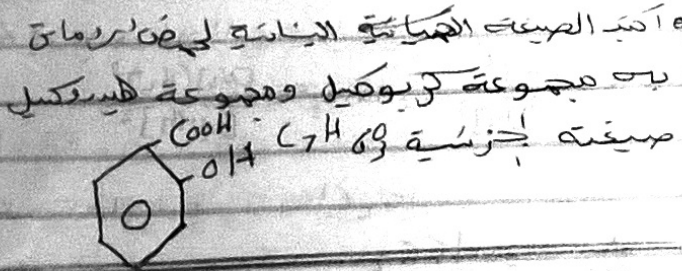 اكتب الصيغة الكيميائية البنائية لحمض اروماتي
به مجموعة كربوكسيل ومجموعة هيدروكسيل
صيغته الجزيئية C7H6O3
COOH
OH